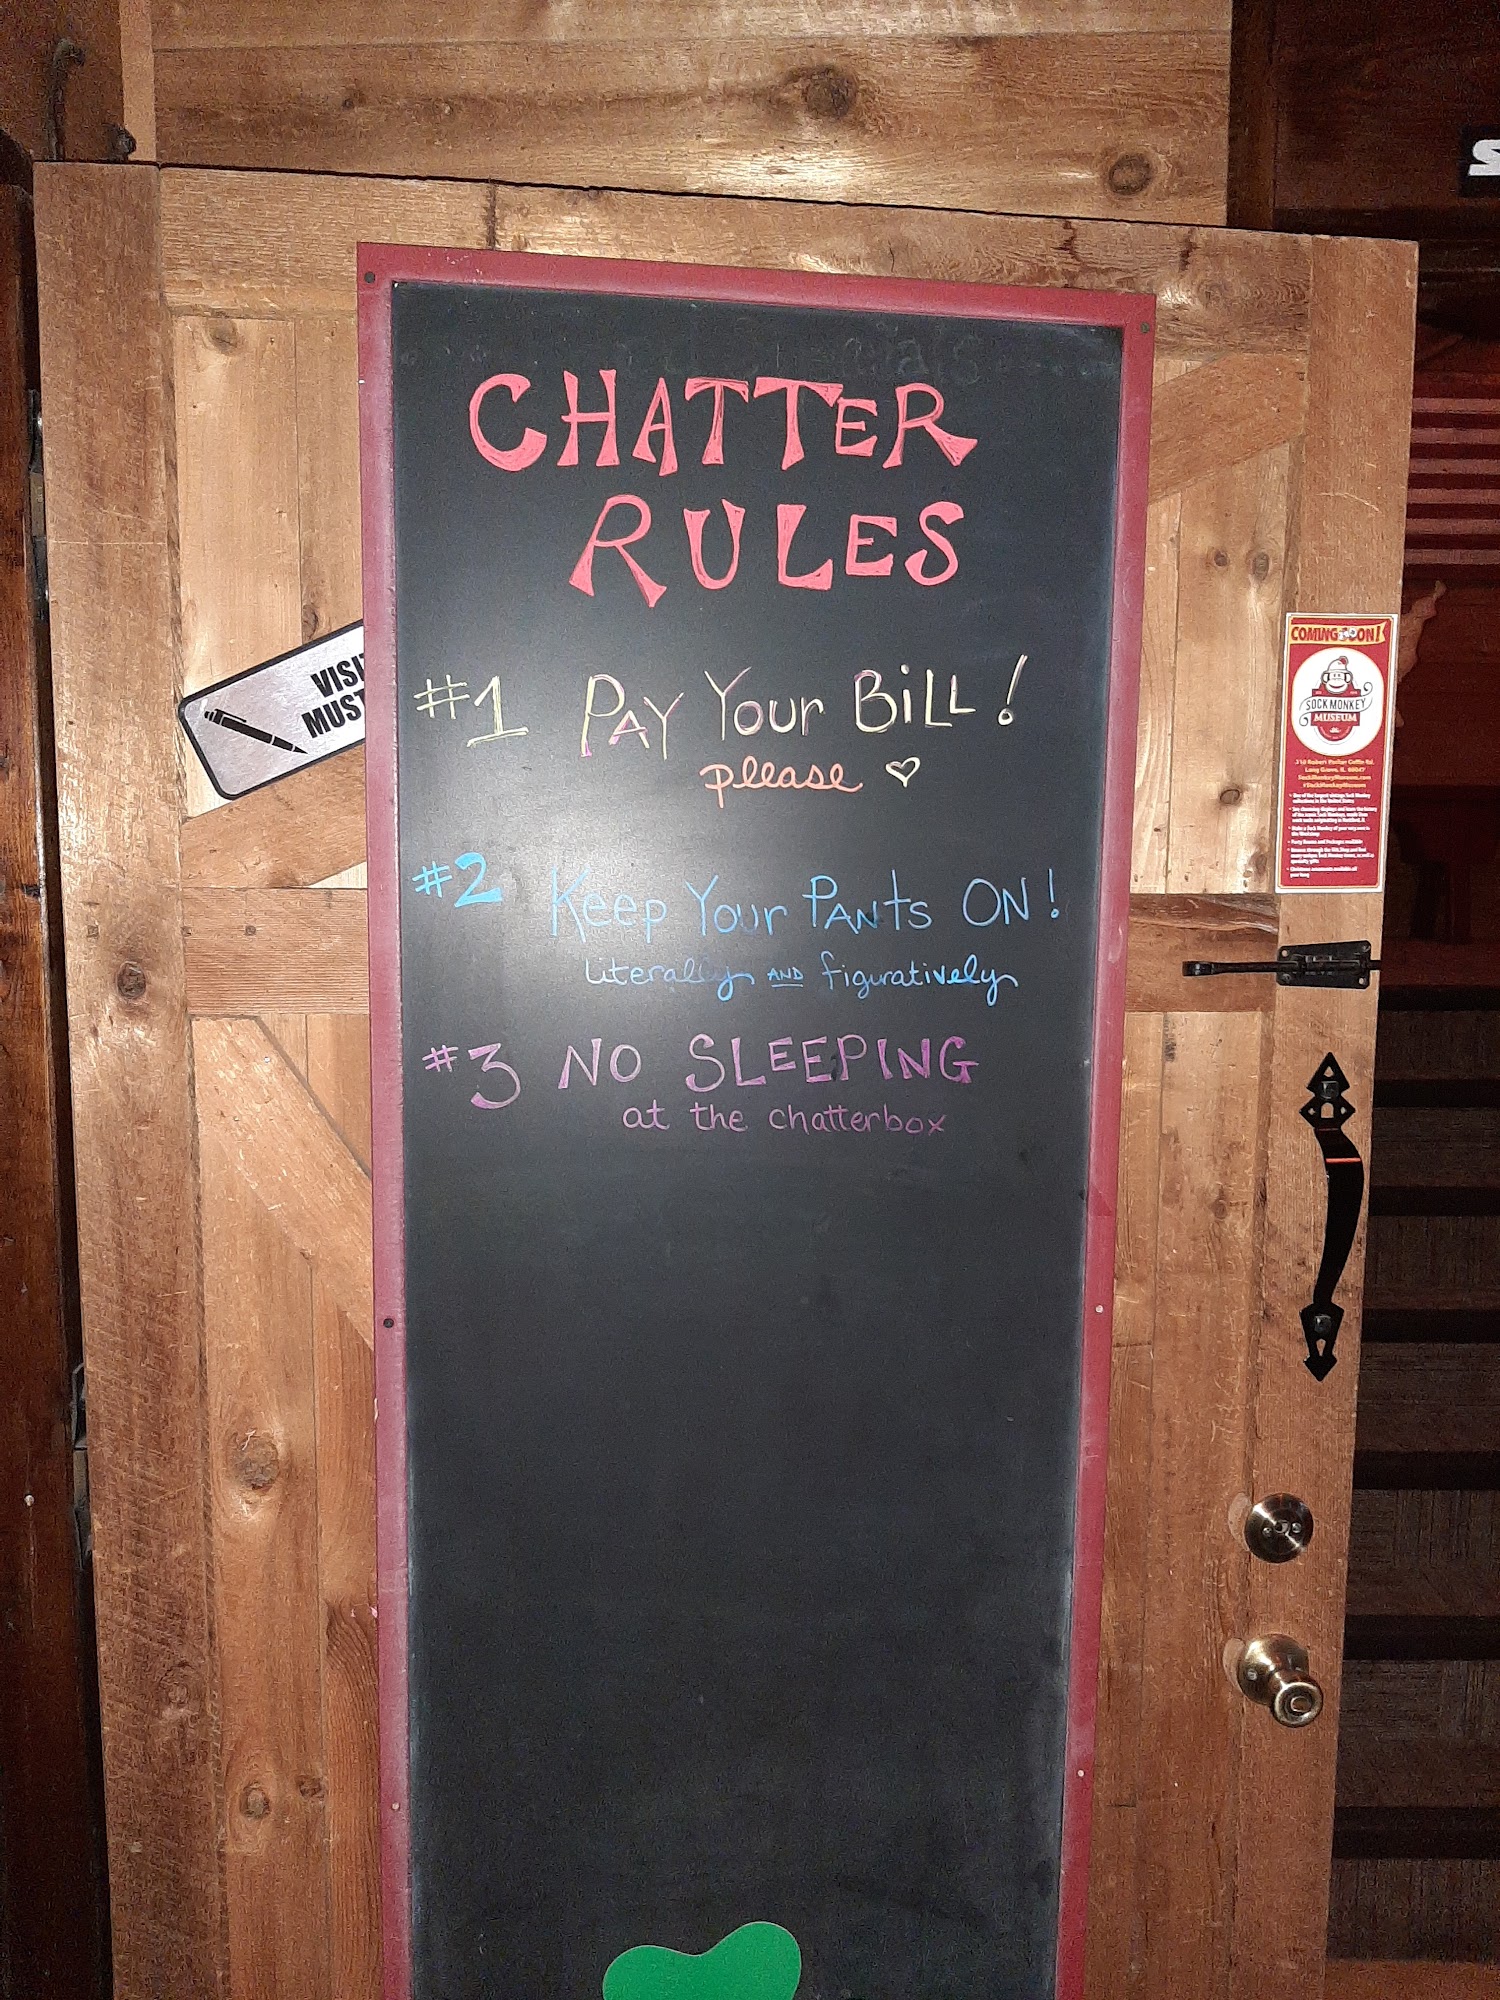 CHATTER
RULES
#1 PAY YOUR BILL!
please
#2 Keep Your PANTS ON!
literally AND figuratively
#3 NO SLEEPING
at the chatterbox
VISI
MUST
COMING SOON!
SOCK MONKEY
MUSEUM
Long Grove, IL 60047
SockMonkeyMuseum.com
#SockMonkeyMuseum